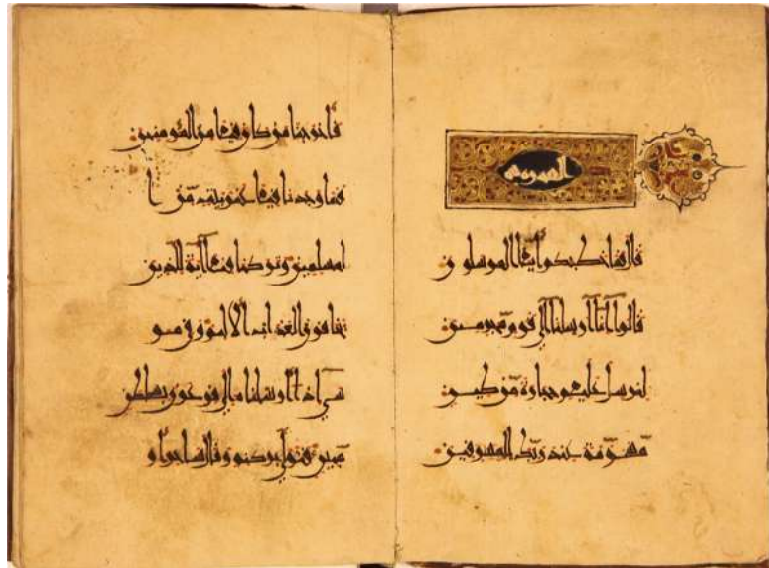 العشرون
قال فما خطبكم أيها المرسلون
قالوا إنا أرسلنا إلى قوم مجرمين
لنرسل عليهم حجارة من طين
مسومة عند ربك للمسرفين
فأخرجنا من كان فيها من المؤمنين
فما وجدنا فيها غير بيت من ا
لمسلمين وتركنا فيها آية للذين
يخافون العذاب الأليم وفي مو
سى إذ أرسلناه إلى فرعون بسلطن
مبين فتولى بركنه وقال ساحر أو